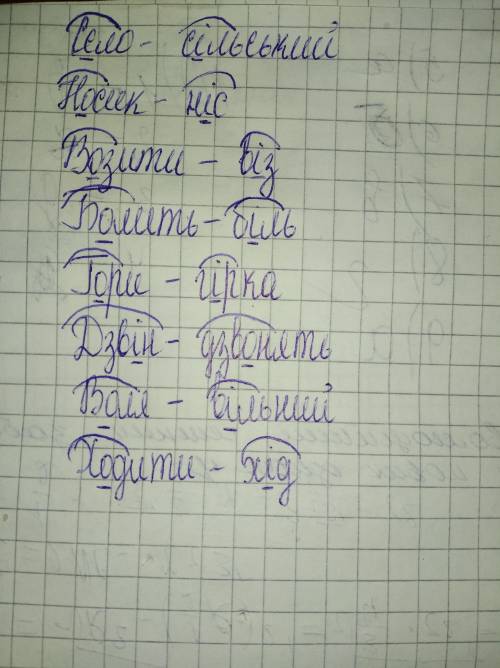 Село - сільський
Носик - ніс
Возити - віз
Болить - біль
Гори - гірка
Дзвін - дзвонять
Воля - вільний
Ходити - хід